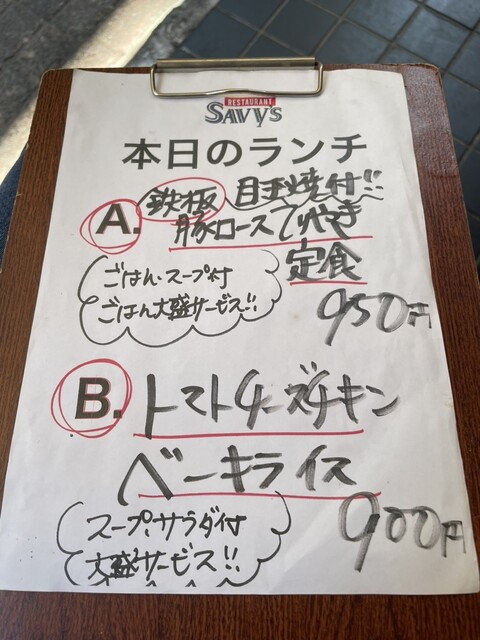 RESTAURANT
SAVVY's
本日のランチ
A. 鉄板 目玉焼付!!
豚ロースてりやき
定食
ごはん、スープ付
ごはん大盛サービス!!
950円
B. トマトチーズチキン
ベーキライス
スープ、サラダ付
大盛サービス!!
900円